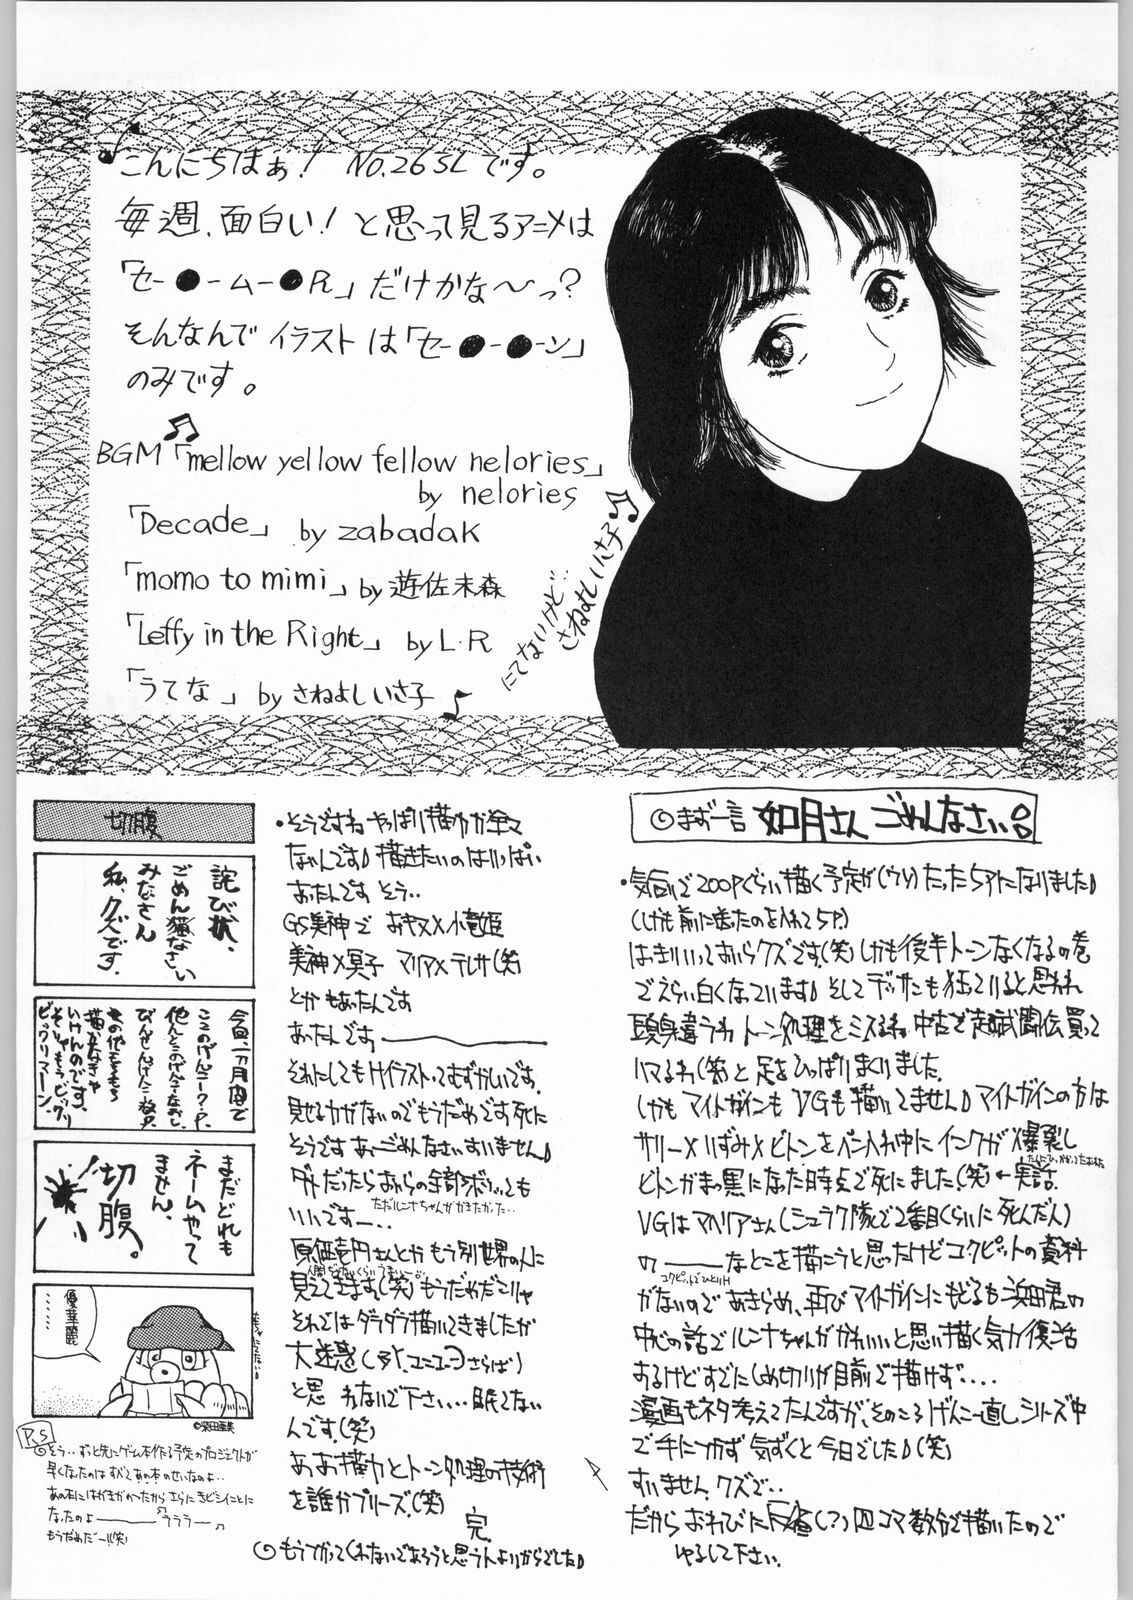 こんにちはぁ! NO.26 SLです。
毎週、面白い!と思って見るアニメは
「セー●ームー●R」だけかな〜っ?
そんなんで イラストは「セー●ー●ーン」
のみです。
BGM「mellow yellow fellow nelories」
by nelories
「Decade」 by zabadak
「momo to mimi」by 遊佐未森
「Leffy in the Right」 by L・R
「うてな」by さねよしいさ子
にてないけど…
さねよしいさ子
◎まず一言 如月さん ごめんなさい
・気合いで200Pぐらい描く予定が(ウソ)たった5Pになりました
(しかも前に送ったのを入れて5P)
はっきりいっておいらクズです。(笑)しかも後半トーンなくなるの巻
でえらい白くなっています。そしてデッサンも狂っていると思われ
頭身違うわ トーン処理をミスるわ、中古で超武闘伝買って
ハマるわ(笑)と 足をひっぱりまくりました。
しかも マイトガインも VGも描いてません マイトガインの方は
サリー×いずみ×ビトンをペン入れ中にインクが爆裂し
ビトンがまっ黒になった時点で死にました。(笑)←実話
VGはマヘリアさん(シュラク隊で2番目くらいに死んだ人)
の———なとこを描こうと思ったけどコクピットの資料
コクピットでひとりH
がないのであきらめ、再びマイトガインにもどるも浜田君の
中心の話でルンナちゃんがかわいいと思い描く気力復活
するけどすでにしめ切りが目前で描けず‥‥
漫画もネタ考えてたんですが、そのころげんこー直しシリーズ中
で手につかず 気ずくと今日でした(笑)
すいません。クズで‥
だから おわびに反省(?)四コマ数分で描いたので
ゆるして下さい。
・そうですね やっぱり描力が全て
なんです 描きたいのはいっぱい
あったんです そう‥
GS美神で おキヌ×小竜姫
美神×冥子 マリア×テレサ(笑)
とかもあったんです
あったんです————
それにしてもHイラストってむずかしいです。
見せる力がないのでもうだめです死に
そうです あーごめんなさいすいません
ダメだったらおいらの全部ボツっても
いいです—‥
ただルンナちゃんがかきたかった‥
原価壱円さんとか もう別世界の人に
見えてきます。(笑)もうだめだこりゃ
それではダラダラ描いてきましたが
と思 われないで下さい‥‥眠くてない
んです。(笑)
ああ描力とトーン処理の技術
を誰かプリーズ。(笑)
完
◎もうつかってくれないであろうと思う人よりからでした
切腹
詫び状、
ごめん猫なさい
みなさん
私、クズです。
今回、一ヵ月間で
いけんのです。
そりゃもう、ビックリ
ビックリマーン。
まだどれも
ネームやって
ません、
切腹。
優華麗
‥‥‥
©柴田亜美
P.S
◎そう‥ずっと先にゲーム本作る予定のプロジェクトが
早くなったのは すべてあの本のせいなのよ‥
あの本にはがきがのったから さらに きびしいことに
なったのよ—— ウララー
もうだめだー!!(笑)